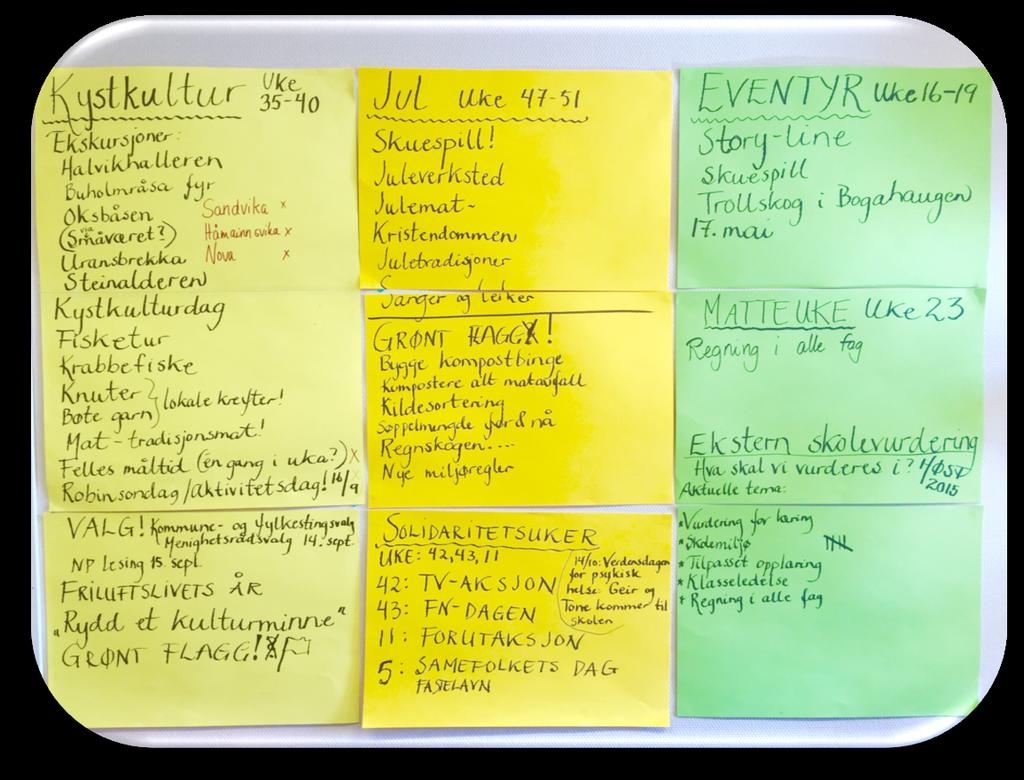 Kystkultur Uke 35-40
Ekskursjoner:
Halvikhalleren
Buholmråsa fyr
Oksbåsen
(via Småværet?)
Uransbrekka
Steinalderen
Sandvika x
Håmainnsvika x
Nova x
Kystkulturdag
Fisketur
Krabbefiske
Knuter
Bøte garn } lokale krefter!
Mat-tradisjonsmat!
Felles måltid (en gang i uka?) x
Robinsondag/Aktivitetsdag! 16/9
VALG! Kommune- og fylkestingsvalg
Menighetsrådsvalg 14. sept.
NP Lesing 15. sept.
FRILUFTSLIVETS ÅR
„Rydd et kulturminne"
GRØNT FLAGG!
Jul Uke 47-51
Skuespill!
Juleverksted
Julemat-
Kristendommen
Juletradisjoner
Sanger og leiker
GRØNT FLAGG!
Bygge kompostbinge
Kompostere alt matavfall
Kildesortering
Søppelmengde før & nå
Regnskogen....
Nye miljøregler
SOLIDARITETSUKER
UKE: 42,43,11
42: TV-AKSJON
43: FN-DAGEN
11: FORUTAKSJON
5: SAMEFOLKETS DAG
FASTELAVN
14/10: Verdensdagen
for psykisk
helse: Geir og
Tone kommer til
skolen
EVENTYR Uke 16-19
Story-line
Skuespill
Trollskog i Bogahaugen
17. mai
MATTEUKE Uke 23
Regning i alle fag
Ekstern skolevurdering
Hva skal vi vurderes i? HØST
2015
Aktuelle tema:
*Vurdering for læring
*Skolemiljø
*Tilpasset opplæring
*Klasseledelse
*Regning i alle fag